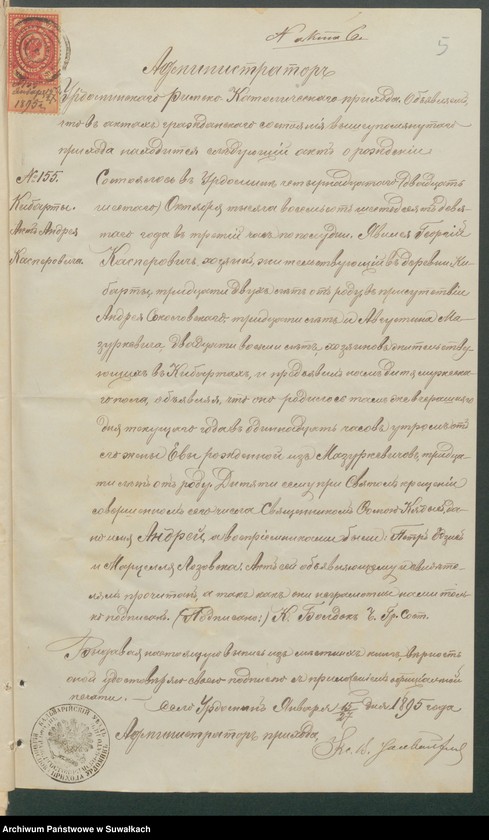 N акта 6.
5
Администраторъ
Урдоминскаго Римско-Католическаго прихода. Объявляетъ,
что въ актахъ гражданскаго состоянія вышеупомянутаго
прихода находится слѣдующій актъ о рожденіи
№ 155.
Кибарты.
Актъ Андрея
Касперовича.
Состоялось въ Урдоминѣ четырнадцатаго (двадцать
шестаго) Октября тысяча восемьсотъ шестьдесятъ девя-
таго года въ третій часъ пополудни. Явился Георгій
Касперовичъ, хозяинъ, жительствующій въ деревни Ки-
барты, тридцати двухъ лѣтъ отъ роду, въ присутствіи
Андрея Соколовскаго тридцати лѣтъ и Августина Ма-
зуркевича, двадцати восьми лѣтъ, хозяиновъ жительству-
ющихъ въ Кибартахъ, и предъявилъ намъ дитя мужеска-
го пола, объявляя, что оно родилось тамъ же вчерашняго
дня текущаго года въ одинадцать часовъ утромъ отъ
его жены Евы рожденной изъ Мазуркевичовъ, тридца-
ти лѣтъ отъ роду. Дитяти сему при Святомъ крещеніи
совершенномъ сего числа Священникомъ да-
но имя Андрей, а воспріемниками были: Петръ
и Марцелла Лозовская. Актъ сей объявляющему и свидѣте-
лямъ прочитанъ, а такъ какъ они неграмотны нами толь-
ко подписанъ. (Подписано:) К. Богдан Ч. Гр. Сост.
Выдавая настоящую выпись изъ мѣстныхъ книгъ, вѣрность
оной удостовѣряю своею подписью съ приложеніемъ официальной
печати.
Село Урдоминъ Января 15/27 дня 1895 года
Администраторъ прихода,
Archiwum Państwowe w Suwałkach